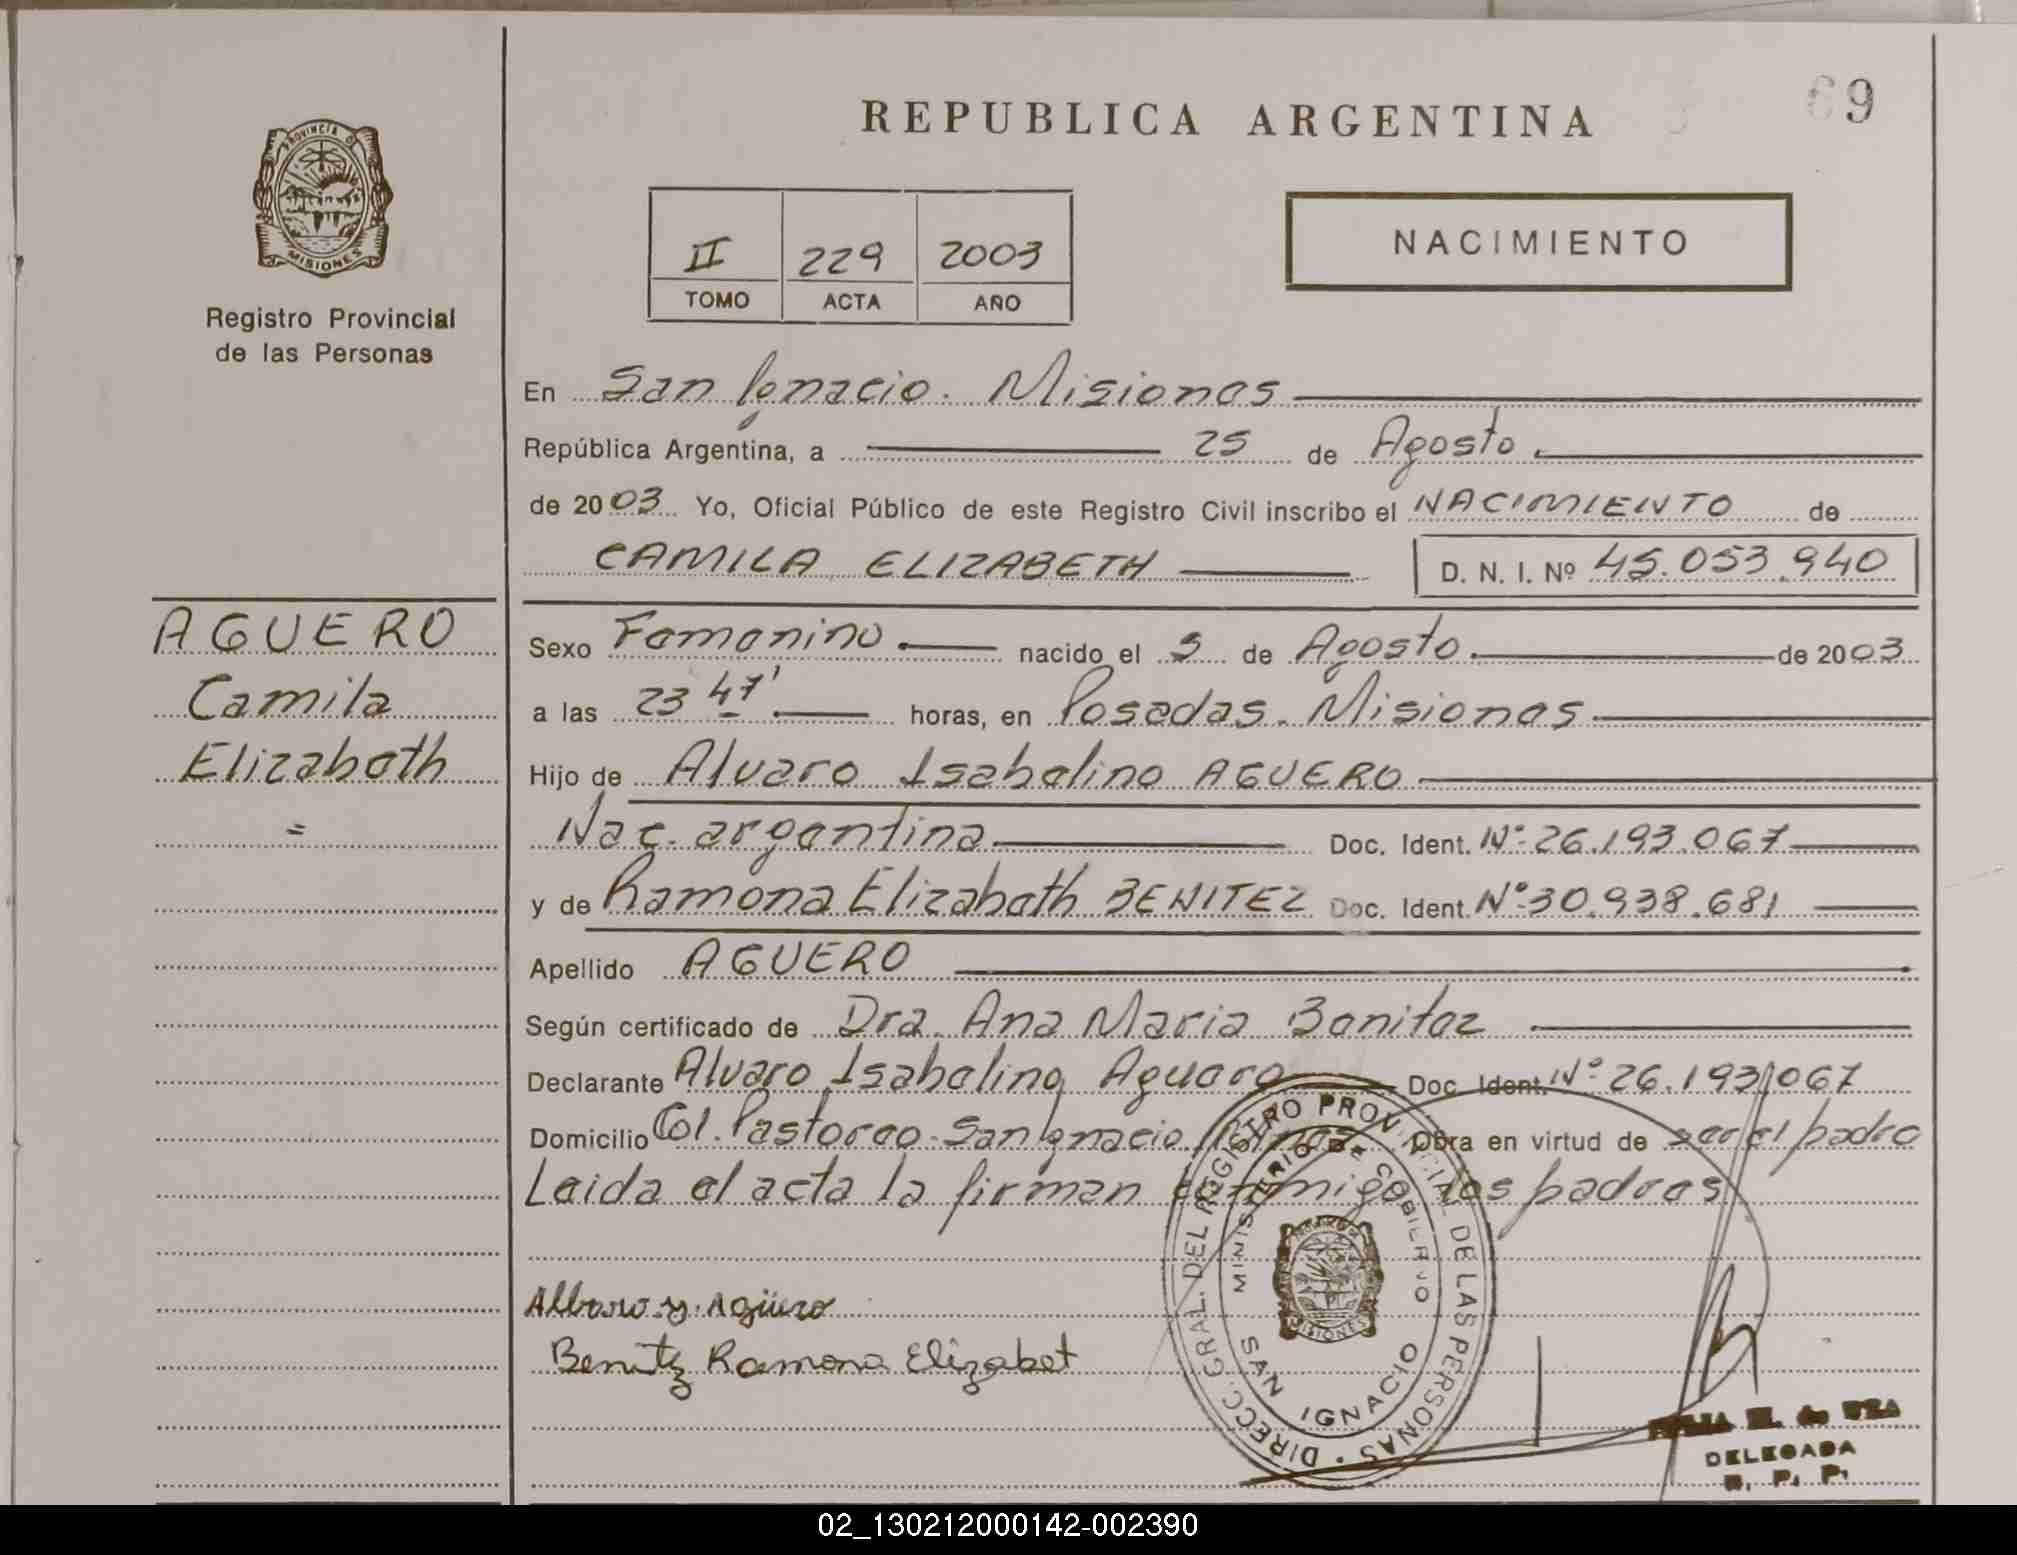 69
REPUBLICA ARGENTINA
PROVINCIA D
MISIONES
Registro Provincial
de las Personas
II 229 2003
TOMO ACTA AÑO
NACIMIENTO
En San Ignacio. Misiones
República Argentina, a 25 de Agosto
de 2003 Yo, Oficial Público de este Registro Civil inscribo el NACIMIENTO de
CAMILA ELIZABETH D. N. I. Nº 45.053.940
AGUERO
Camila
Elizabeth
=
Sexo Femenino nacido el 5 de Agosto de 2003
a las 23 47' horas, en Posadas. Misiones
Hijo de Alvaro Isabelino AGUERO
Nac. argentina Doc. Ident. Nº 26.193.067
y de Ramona Elizabeth BENITEZ Doc. Ident. Nº 30.938.681
Apellido AGUERO
Según certificado de Dra. Ana Maria Benitez
Declarante Alvaro Isabelino Aguero Doc. Ident. Nº 26.193.067
Domicilio Col. Pastoreo. San Ignacio. Mnes. Obra en virtud de ser el padre
Leida el acta la firman conmigo los padres
Albaro y. Agüero
Benitz Ramona Elizabet
DIRECC. GRAL. DEL REGISTRO PROVINCIAL DE LAS PERSONAS
MINISTERIO DE GOBIERNO
SAN IGNACIO
MISIONES
DELEGADA
R. P. P.
02_130212000142-002390